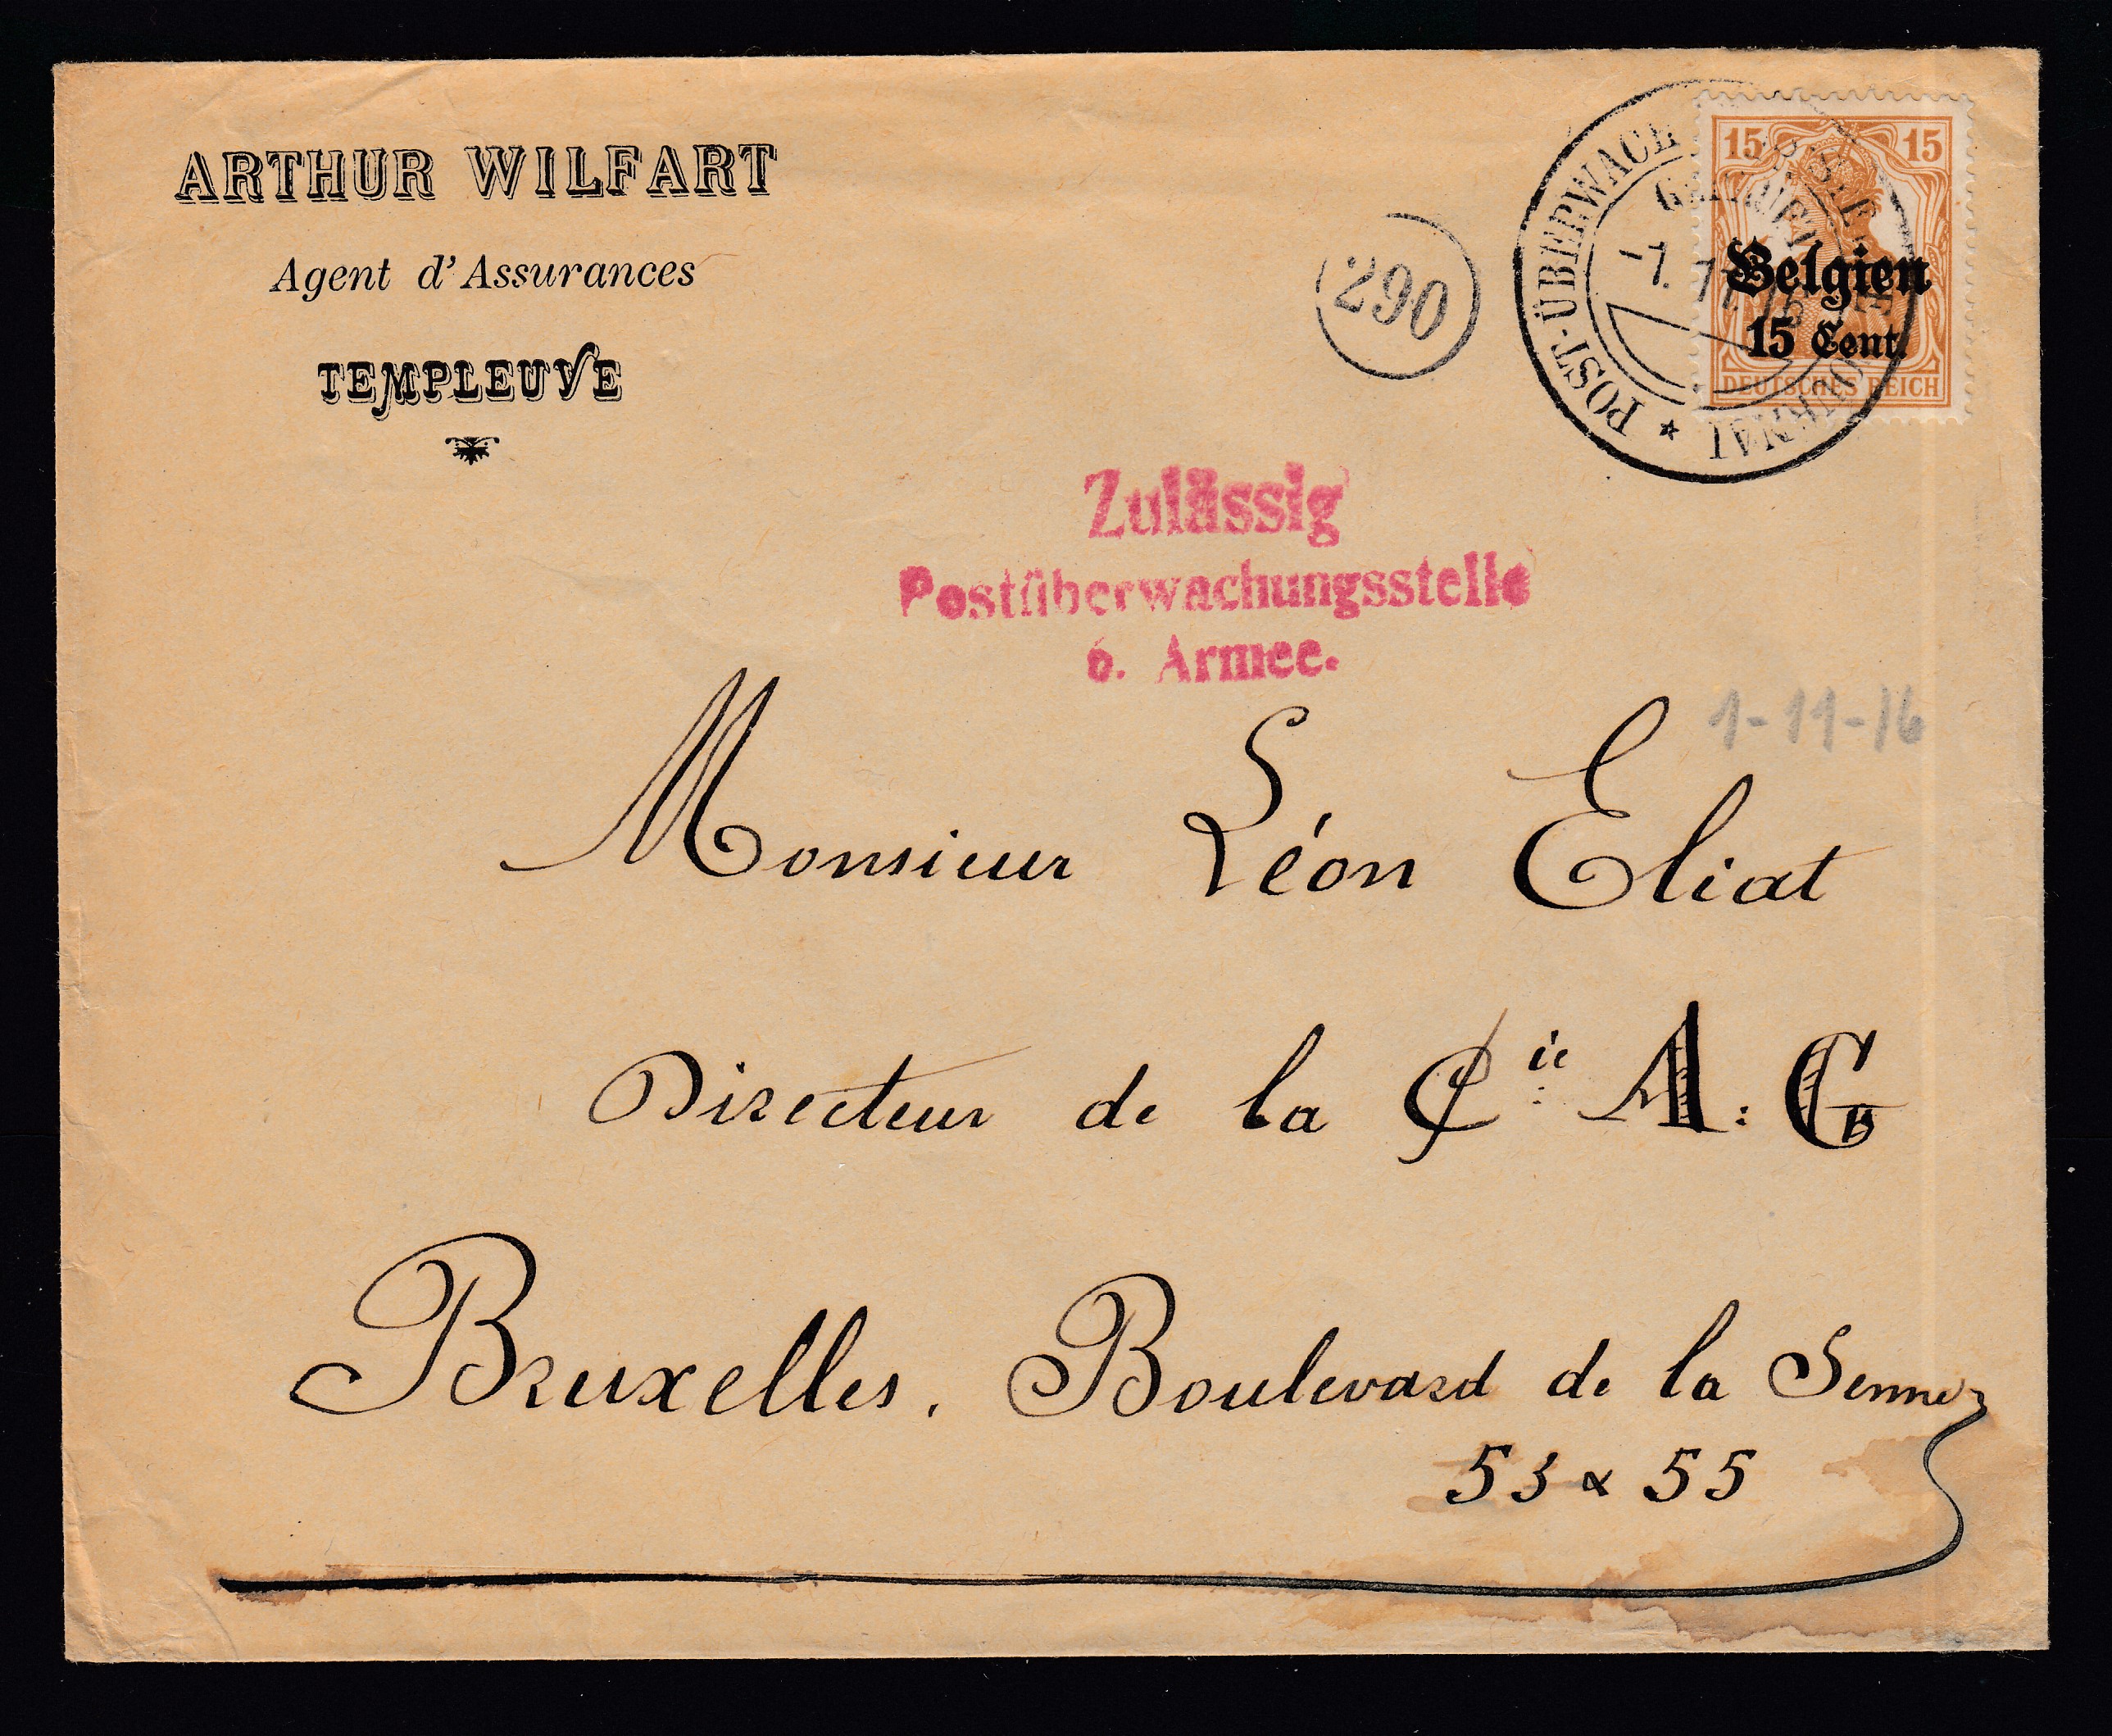 ARTHUR WILFART
Agent d'Assurances
TEMPLEUVE
290
POST-ÜBERWACH
TOURNAI
15 15
Belgien
15 Cent.
DEUTSCHES REICH
Zulässig
Postüberwachungsstelle
6. Armee.
1-11-16
Monsieur Léon Eliat
Directeur de la Cie A: G
Bruxelles. Boulevard de la Senne
53 & 55